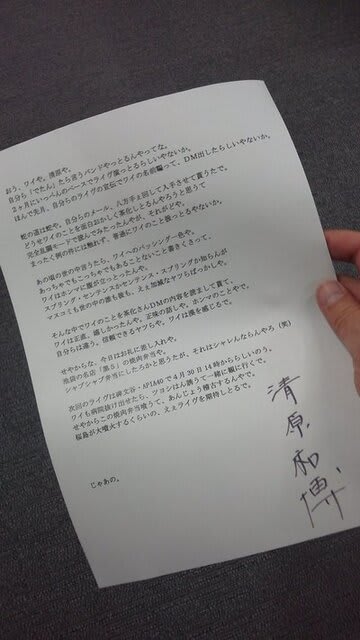 おう、ワイや。清原や。
自分ら「でたん」たら言うバンドやっとるんやってな。
2ヶ月にいっぺんのペースでライヴ演っとるらしいやないか。
ほんで先月、自分らのライヴの宣伝でワイの名前騙って、DM出したらしいやないか。
蛇の道は蛇や。自分らのメール、八方手え回して入手させて貰うたで。
どうせワイのことを面白おかしく茶化しとるんやろうと思うて
完全乱闘モードで読んでみたったんやが、それがどや。
まったく例の件には触れず、普通にワイのこと扱っとるやないか。
あの頃の世の中言うたら、ワイへのバッシング一色や。
あっちゃでもこっちゃでもあることないこと書きくさって、
ワイはホンマに腹が立っとったんや。
スプリング・センテンスかセンテンス・スプリングか知らんが
マスコミも世の中の誰も彼も、ええ加減なヤツらばっかしや。
そんな中でワイのことを茶化さんDMの内容を読まして貰て、
ワイは正直、嬉しかったんや。正味の話しや。ホンマのことやで。
自分らは違う。信頼できるヤツらや。ワイは漢を感じるで。
せやからな、今日はお礼に差し入れや。
池袋の名店「黒5」の焼肉弁当や。
シャブシャブ弁当にしたろかと思うたが、それはシャレんならんやろ(笑)
次回のライヴは碑文谷・APIA40で4月30日14時かららしいのう。
ワイも病院抜け出せたら、ツヨシはん誘うて一緒に観に行くで。
せやからこの焼肉弁当喰うて、あんじょう稽古するんやで。
桜島が大噴火するくらいの、ええライヴを期待しとるで。
じゃあの。
清原和博